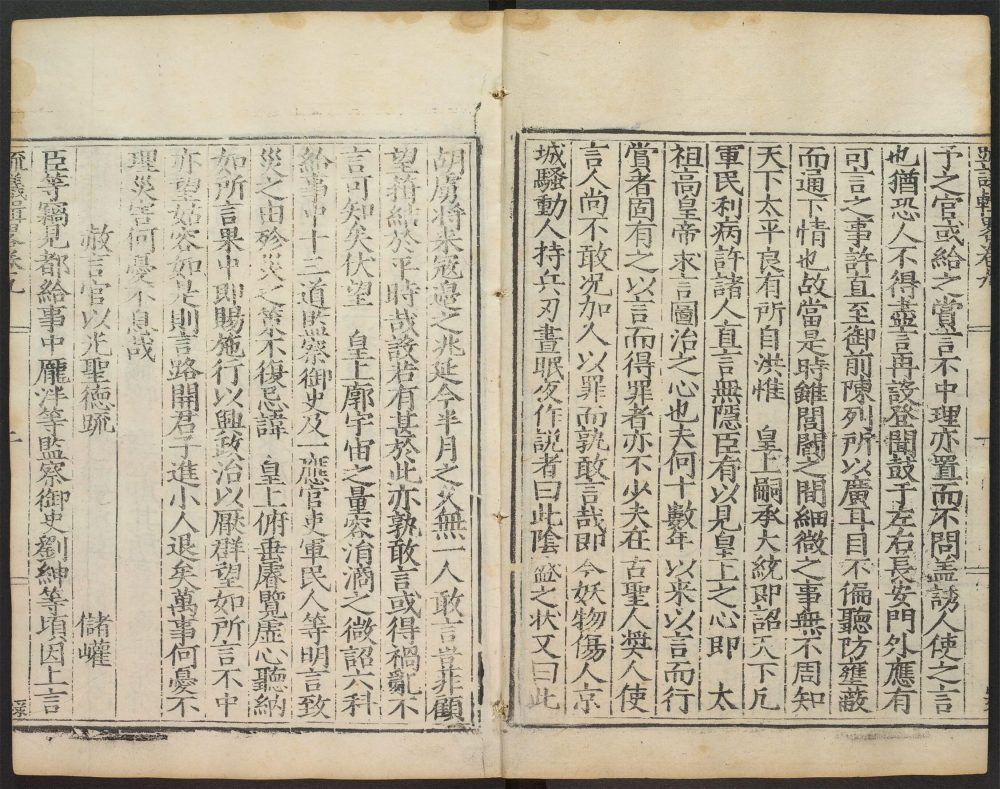 予之官或給之賞言不中理亦置而不問盖誘人使之言
也猶恐人不得盡言再設登聞鼓于左右長安門外應有
可言之事許直至御前陳列所以廣耳目不徧聽防壅蔽
而通下情也故當是時雖閭閻之間細微之事無不周知
天下太平良有所自洪惟 皇上嗣承大統即詔天下凡
軍民利病許諸人直言無隱臣有以見皇上之心即 太
祖高皇帝求言圖治之心也夫何十數年 以來以言而行
賞者固有之以言而得罪者亦不少夫在古聖人奬人使
言人尚不敢况加人以罪而孰敢言哉即 今妖物傷人京
城騷動人持兵刃晝眠夜作説者曰此陰盛之状又曰此
胡虜将来冦邉之兆延今半月之久無一人敢言豈非傾
望箝結於平時哉設若有甚於此亦孰敢言或得禍亂不
言可知矣伏望 皇上廓宇宙之量容涓滴之微詔六科
給事中十三道監察御史及一應官吏軍民人等明言致
災之由殄災之策不復忌諱 皇上俯垂睿覽虛心聽納
如所言果中即賜施行以興政治以厭群望如所言不中
亦望姑容如是則言路開君子進小人退矣萬事何憂不
理災害何憂不息哉
赦言官以光聖德疏 儲巏
臣等竊見都給事中龎泮等監察御史劉紳等頃因上言